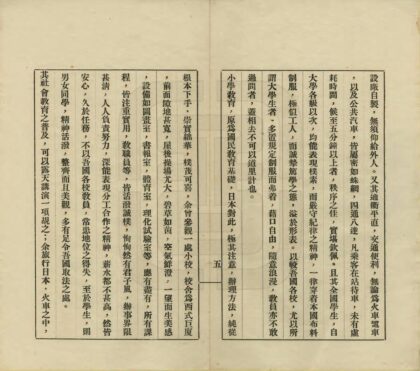 設廠自製、無須仰給外人。又其道衢平直、交通便利、無論爲火車電車
、以及公共汽車、皆屬密如蛛網、四通八達、凡乘客在站待車、未有虛
耗時間、候至五分鐘以上者、秩序之佳、實堪欽佩、且其全國學生、自
大學各級以次、均能表現樸素、而嚴守紀律之精神、一律穿着本國布料
制服、極似工人、而誠摯篤學之態、溢於形表、以較吾國各校、尤以所
謂大學生者、多置規定制服而弗着、藉口自由、隨意浪漫、教員亦不敢
過問者、蓋相去不可以道里計也。
小學教育、原爲國民教育基礎、日本對此、極其注意、辦理方法、純從
五
根本下手、崇實絀華、樸茂可喜、余曾參觀一處小校、校舍爲西式巨廈
、前面隙地甚寬、屋後操場尤大、碧草如茵、空氣鮮澄、一望而生美感
、設備如圖書室、書報室、體育室、理化試驗室等、應有盡有、所有課
程、皆注重實用、教職員等、皆活潑誠樸、恂恂然有君子風、辦事界限
甚清、人人負責努力、深能表現分工合作之精神、薪水都不甚高、然皆
安心、久於任務、不以吾國各校教員、當患地位之得失、至於學生、則
男女同學、精神活潑、整齊而且美觀、多有足令吾國取法之處。
其社會教育之普及、可以露天講演一項覘之、余旅行日本、火車之中、